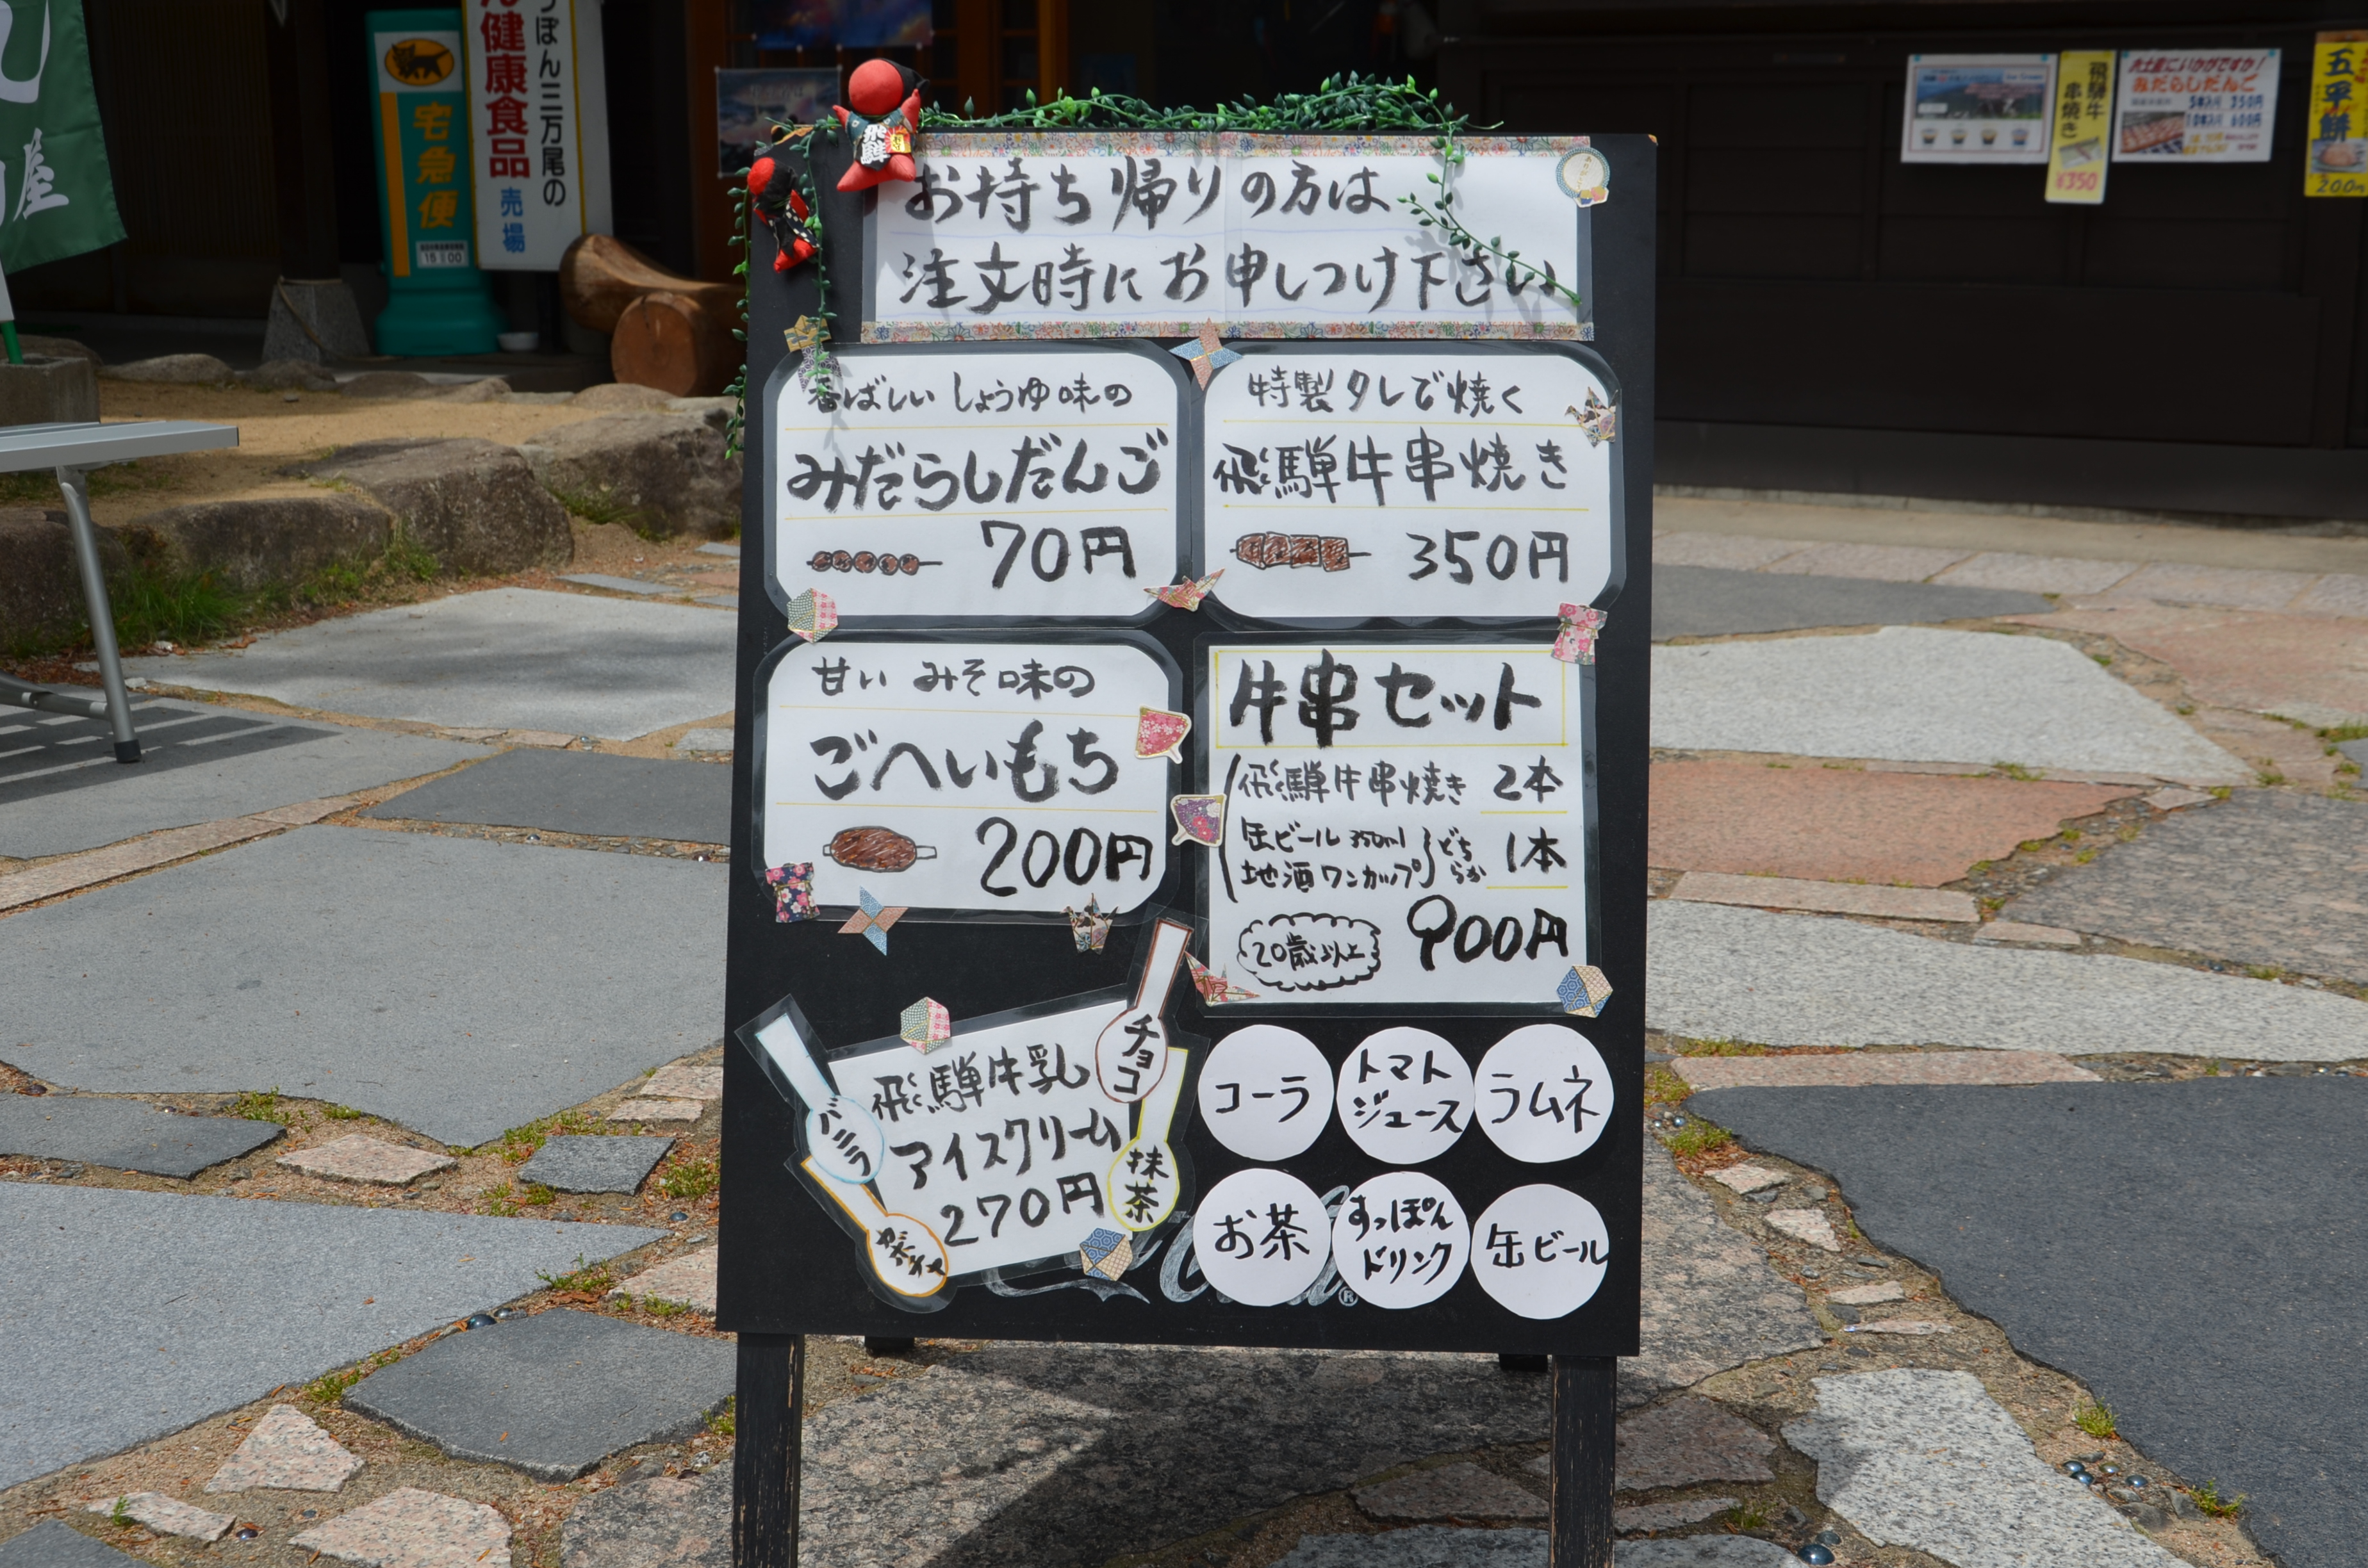 お持ち帰りの方は
注文時にお申しつけ下さい
香ばしい しょうゆ味の
みだらしだんご
70円
特製タレで焼く
飛騨牛串焼き
350円
甘い みそ味の
ごへいもち
200円
牛串セット
飛騨牛串焼き 2本
缶ビール 350ml
地酒ワンカップ
どちらか
1本
20歳以上
900円
飛騨牛乳
アイスクリーム
270円
バニラ
チョコ
抹茶
カボチャ
コーラ
トマト
ジュース
ラムネ
お茶
すっぽん
ドリンク
缶ビール
®
飛騨
宅急便
健康食品
売場
っぽん三万尾の
屋
飛騨牛
串焼き
¥350
お土産にいかがですか!
みだらしだんご
5本入り 350円
10本入り 600円
五平餅
200円